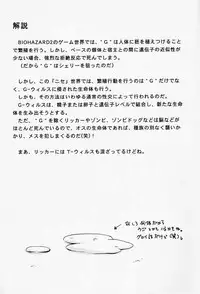 解説
BIOHAZARD2のゲーム世界では、"G"は人体に胚を植えつけることで
繁殖を行う。しかし、ベースの個体と宿主との間に遺伝子の近似性が
少ない場合、強烈な拒絶反応で死んでしまう。
(だから"G"はシェリーを狙ったのだ)
しかし、この「ニセ」世界では、繁殖行動を行うのは"G"だけでなく
G-ウィルスに侵された生命体も行う。
しかも、その方法はいわゆる通常の性交によって行われるのだ。
G-ウィルスは、精子または卵子と遺伝子レベルで結合し、新たな生命
体を生み出そうとする。
ただ、"G"を除くリッカーやゾンビ、ゾンビドッグなどは脳などが
ほとんど死んでいるので、オスの生命体であれば、種族の別なく動くか
ぎり、メスを犯しまくるのだ(笑)。
まあ、リッカーには T-ウィルスも混ざってるけどね。